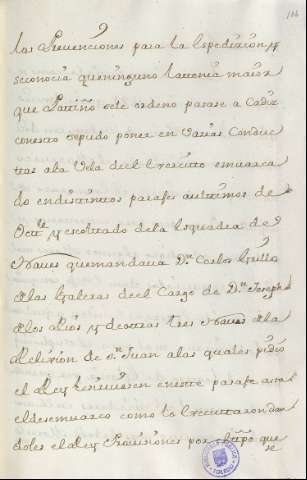 106
las Prevenciones para la Espedizion, y
se conocia que ninguno la tenia maior
que Patiño se le ordeno pasase a Cadiz
con esto se pudo poner en varias Conduc
tas a la Vela de el Exercito embarca
do en distintos parajes a ultimos de
Oct.re y escoltado de la Esquadra de 9
Naves que mandava D.n Carlos Grillo
a las Galeras de el Cargo de D.n Joseph
de los Rios y de otras tres Naves de la
Relixion de S.n Juan a las quales pidio
el Rey
el desembarco como lo executaron dan
doles el Rey Provisiones por tiempo que
se
BIBLIOTECA PUBLICA
TOLEDO